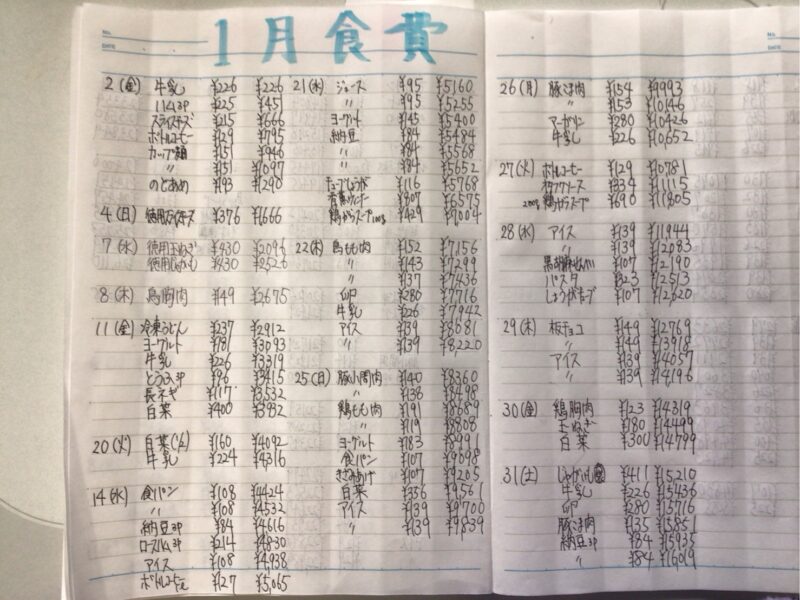 1月食費
2(金) 牛乳 ¥226 ¥226
ハム3P ¥225 ¥451
スライスチーズ ¥215 ¥666
ボトルコーヒー ¥129 ¥795
カップ麺 ¥151 ¥946
〃 ¥151 ¥1097
のどあめ ¥193 ¥1290
4(日) 徳用スライスチーズ ¥376 ¥1666
7(水) 徳用玉ねぎ ¥430 ¥2096
徳用じゃがいも ¥430 ¥2526
8(木) 鳥胸肉 ¥149 ¥2675
11(金) 冷凍うどん ¥237 ¥2912
ヨーグルト ¥181 ¥3093
牛乳 ¥226 ¥3319
とうふ3P ¥96 ¥3415
長ネギ ¥117 ¥3532
白菜 ¥400 ¥3932
20(火) 白菜(½) ¥160 ¥4092
牛乳 ¥224 ¥4316
14(水) 食パン ¥108 ¥4424
〃 ¥108 ¥4532
納豆3P ¥84 ¥4616
ロースハム3P ¥214 ¥4830
アイス ¥108 ¥4938
ボトルコーヒー ¥127 ¥5,065
21(水) ジュース ¥95 ¥5160
〃 ¥95 ¥5255
ヨーグルト ¥145 ¥5400
納豆 ¥84 ¥5484
〃 ¥84 ¥5568
〃 ¥84 ¥5652
チューブしょうが ¥116 ¥5768
¥807 ¥6575
鶏がらスープ100g ¥429 ¥7,004
22(木) 鳥もも肉 ¥152 ¥7,156
〃 ¥143 ¥7299
〃 ¥137 ¥7436
卵 ¥280 ¥7716
牛乳 ¥226 ¥7942
アイス ¥139 ¥8081
〃 ¥139 ¥8,220
25(日) 豚小間肉 ¥140 ¥8360
〃 ¥138 ¥8498
鶏もも肉 ¥191 ¥8689
〃 ¥119 ¥8808
ヨーグルト ¥183 ¥8991
食パン ¥107 ¥9098
きざみあげ ¥107 ¥9205
白菜 ¥356 ¥9561
アイス ¥139 ¥9700
〃 ¥139 ¥9839
No.
DATE
26(月) 豚こま肉 ¥154 ¥9993
〃 ¥153 ¥10146
マーガリン ¥280 ¥10426
牛乳 ¥226 ¥10,652
27(火) ボトルコーヒー ¥129 ¥10,781
¥334 ¥11115
200g 鶏がらスープ ¥690 ¥11805
28(水) アイス ¥139 ¥11944
〃 ¥139 ¥12083
黒胡麻せんべい ¥107 ¥12190
パスタ ¥323 ¥12513
しょうがチューブ ¥107 ¥12620
29(木) 板チョコ ¥149 ¥12769
〃 ¥149 ¥13918
アイス ¥139 ¥14057
〃 ¥139 ¥14,196
30(金) 鶏胸肉 ¥123 ¥14319
玉ねぎ ¥180 ¥14499
白菜 ¥300 ¥14799
31(土) じゃがいも ¥411 ¥15210
牛乳 ¥226 ¥15436
卵 ¥280 ¥15716
豚こま肉 ¥135 ¥15851
納豆3P ¥84 ¥15935
〃 ¥84 ¥16019